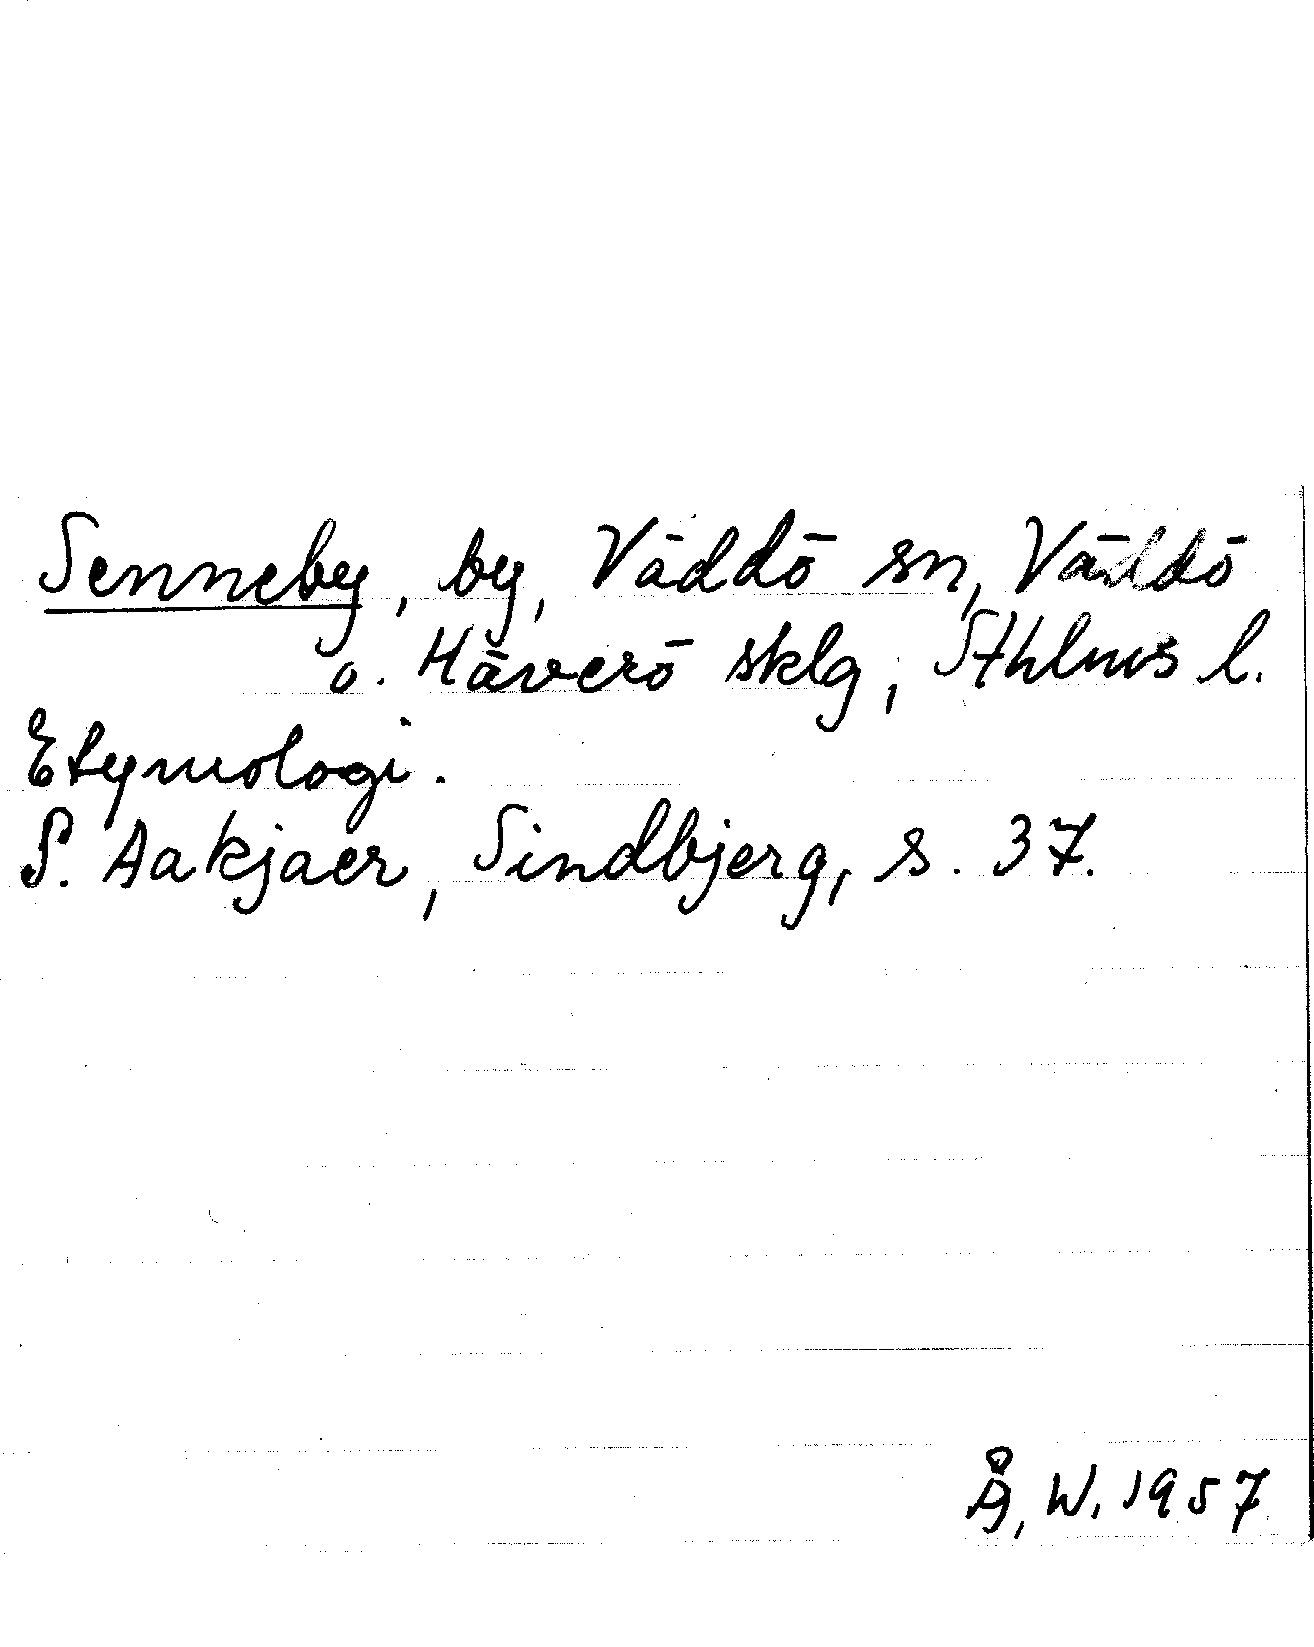 Senneby, by, Väddö sn, Väddö
o. Häverö sklg, Sthlms l.
Etymologi.
S. Aakjaer, Sindbjerg, s. 37.
Å. W. 1957